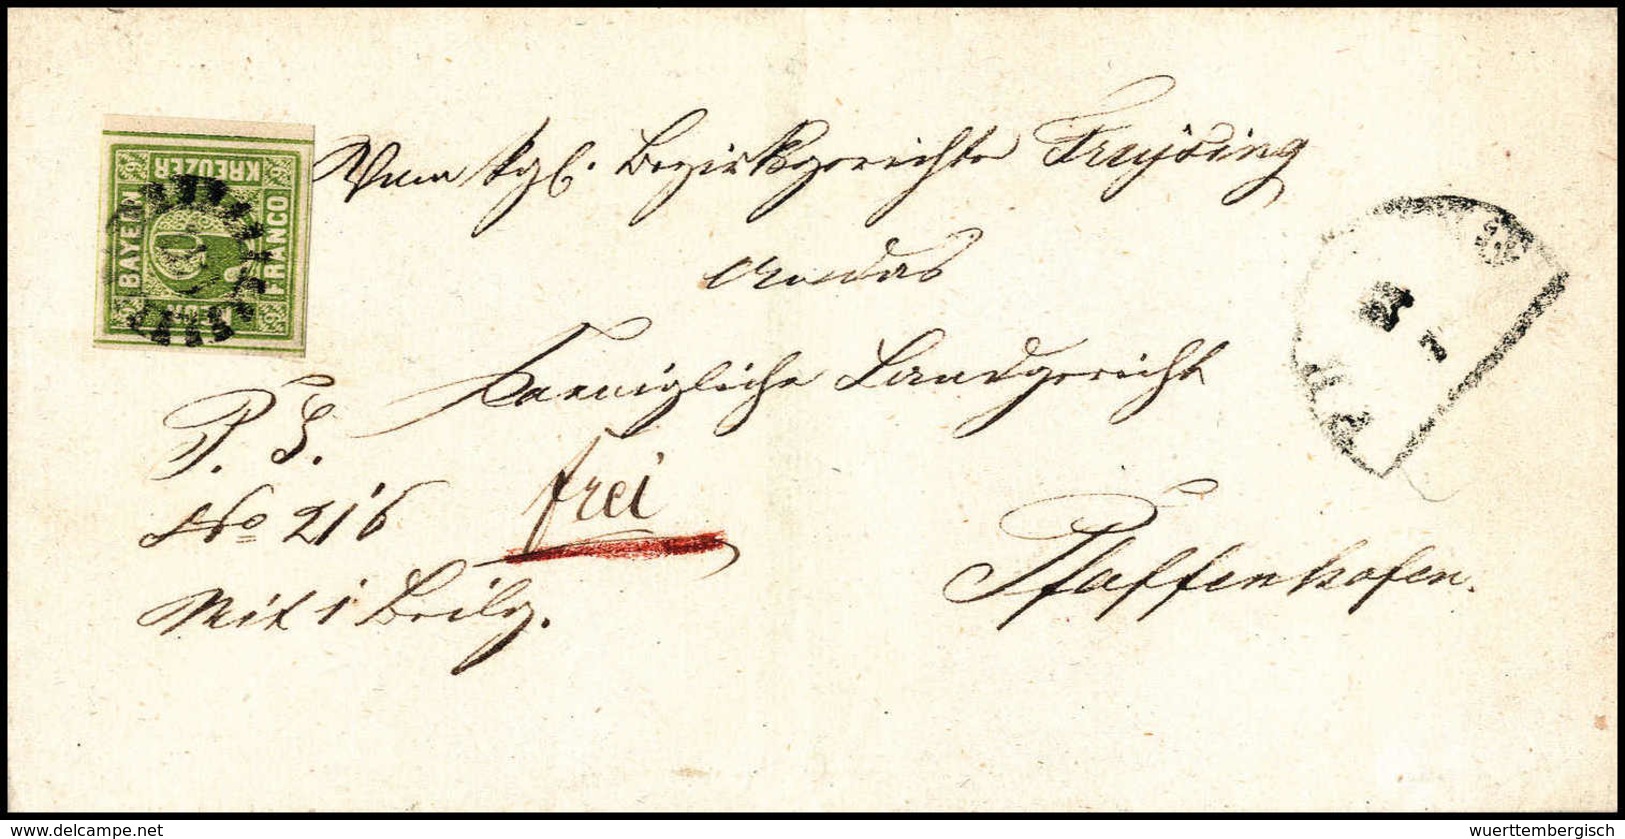 KREUZER
BAYERN
FRANCO
9
Vom kgl. Bezirksgerichte Freysing
an das
Koenigliche Landgericht
P. S.
No 216
frei
Mit 1 Beilg.
Pfaffenhofen.
www.delcampe.net
wuerttembergisch